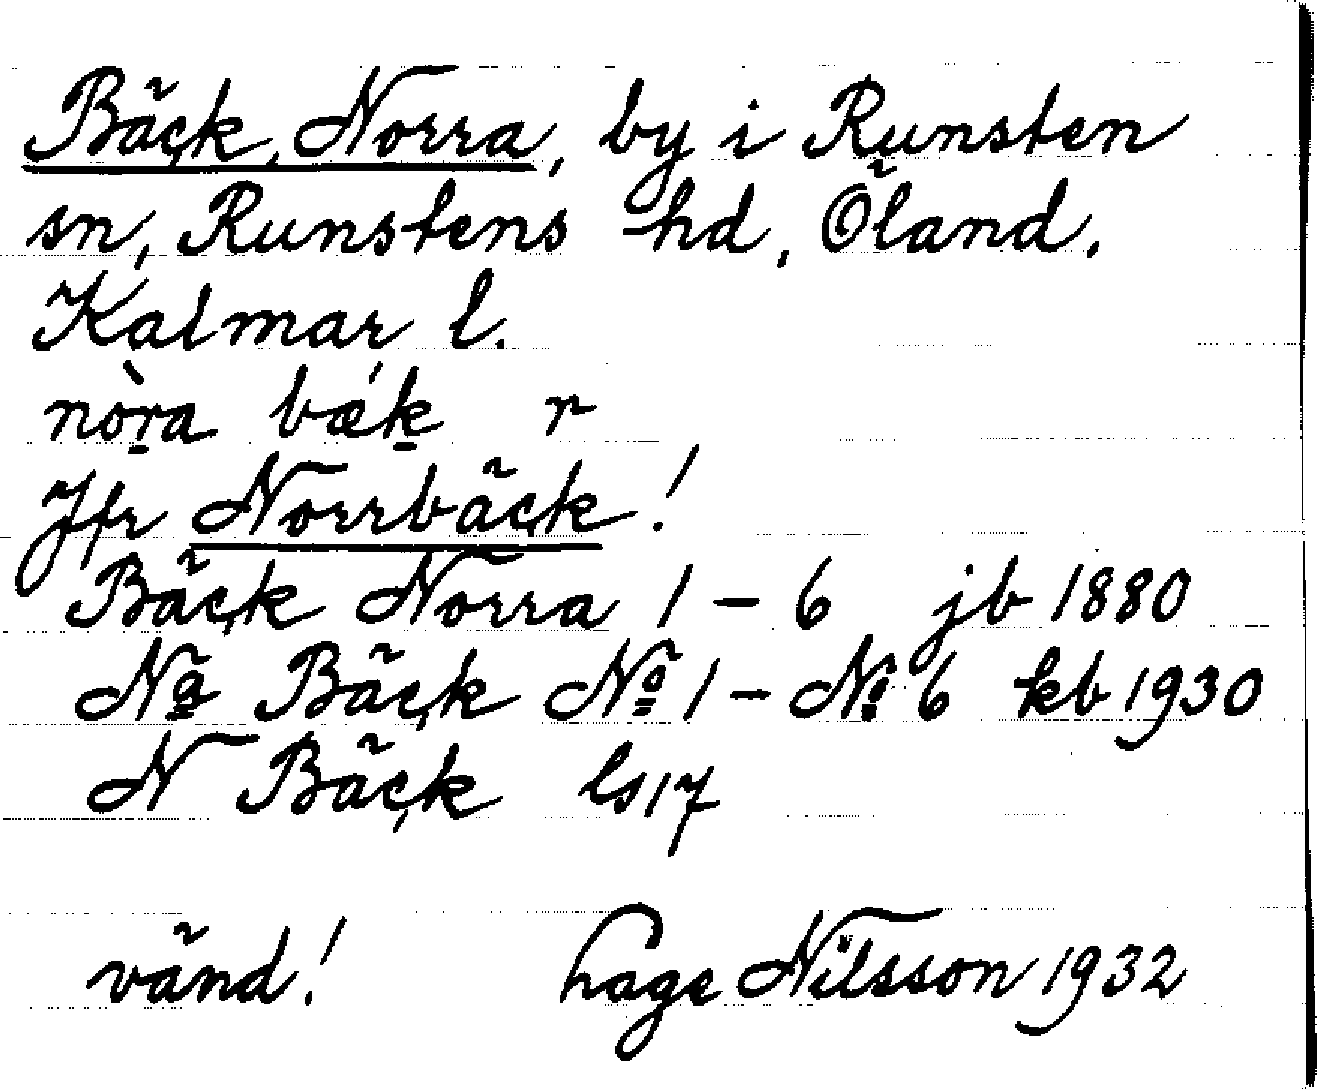 Bäck, Norra, by i Runsten
sn, Runstens hd, Öland,
Kalmar l.
nòra bæ´k r
Jfr Norrbäck!
Bäck Norra 1 – 6 jb 1880
Na Bäck No 1 – No 6 kb 1930
N Bäck ls 17
vänd! hage Nilsson 1932